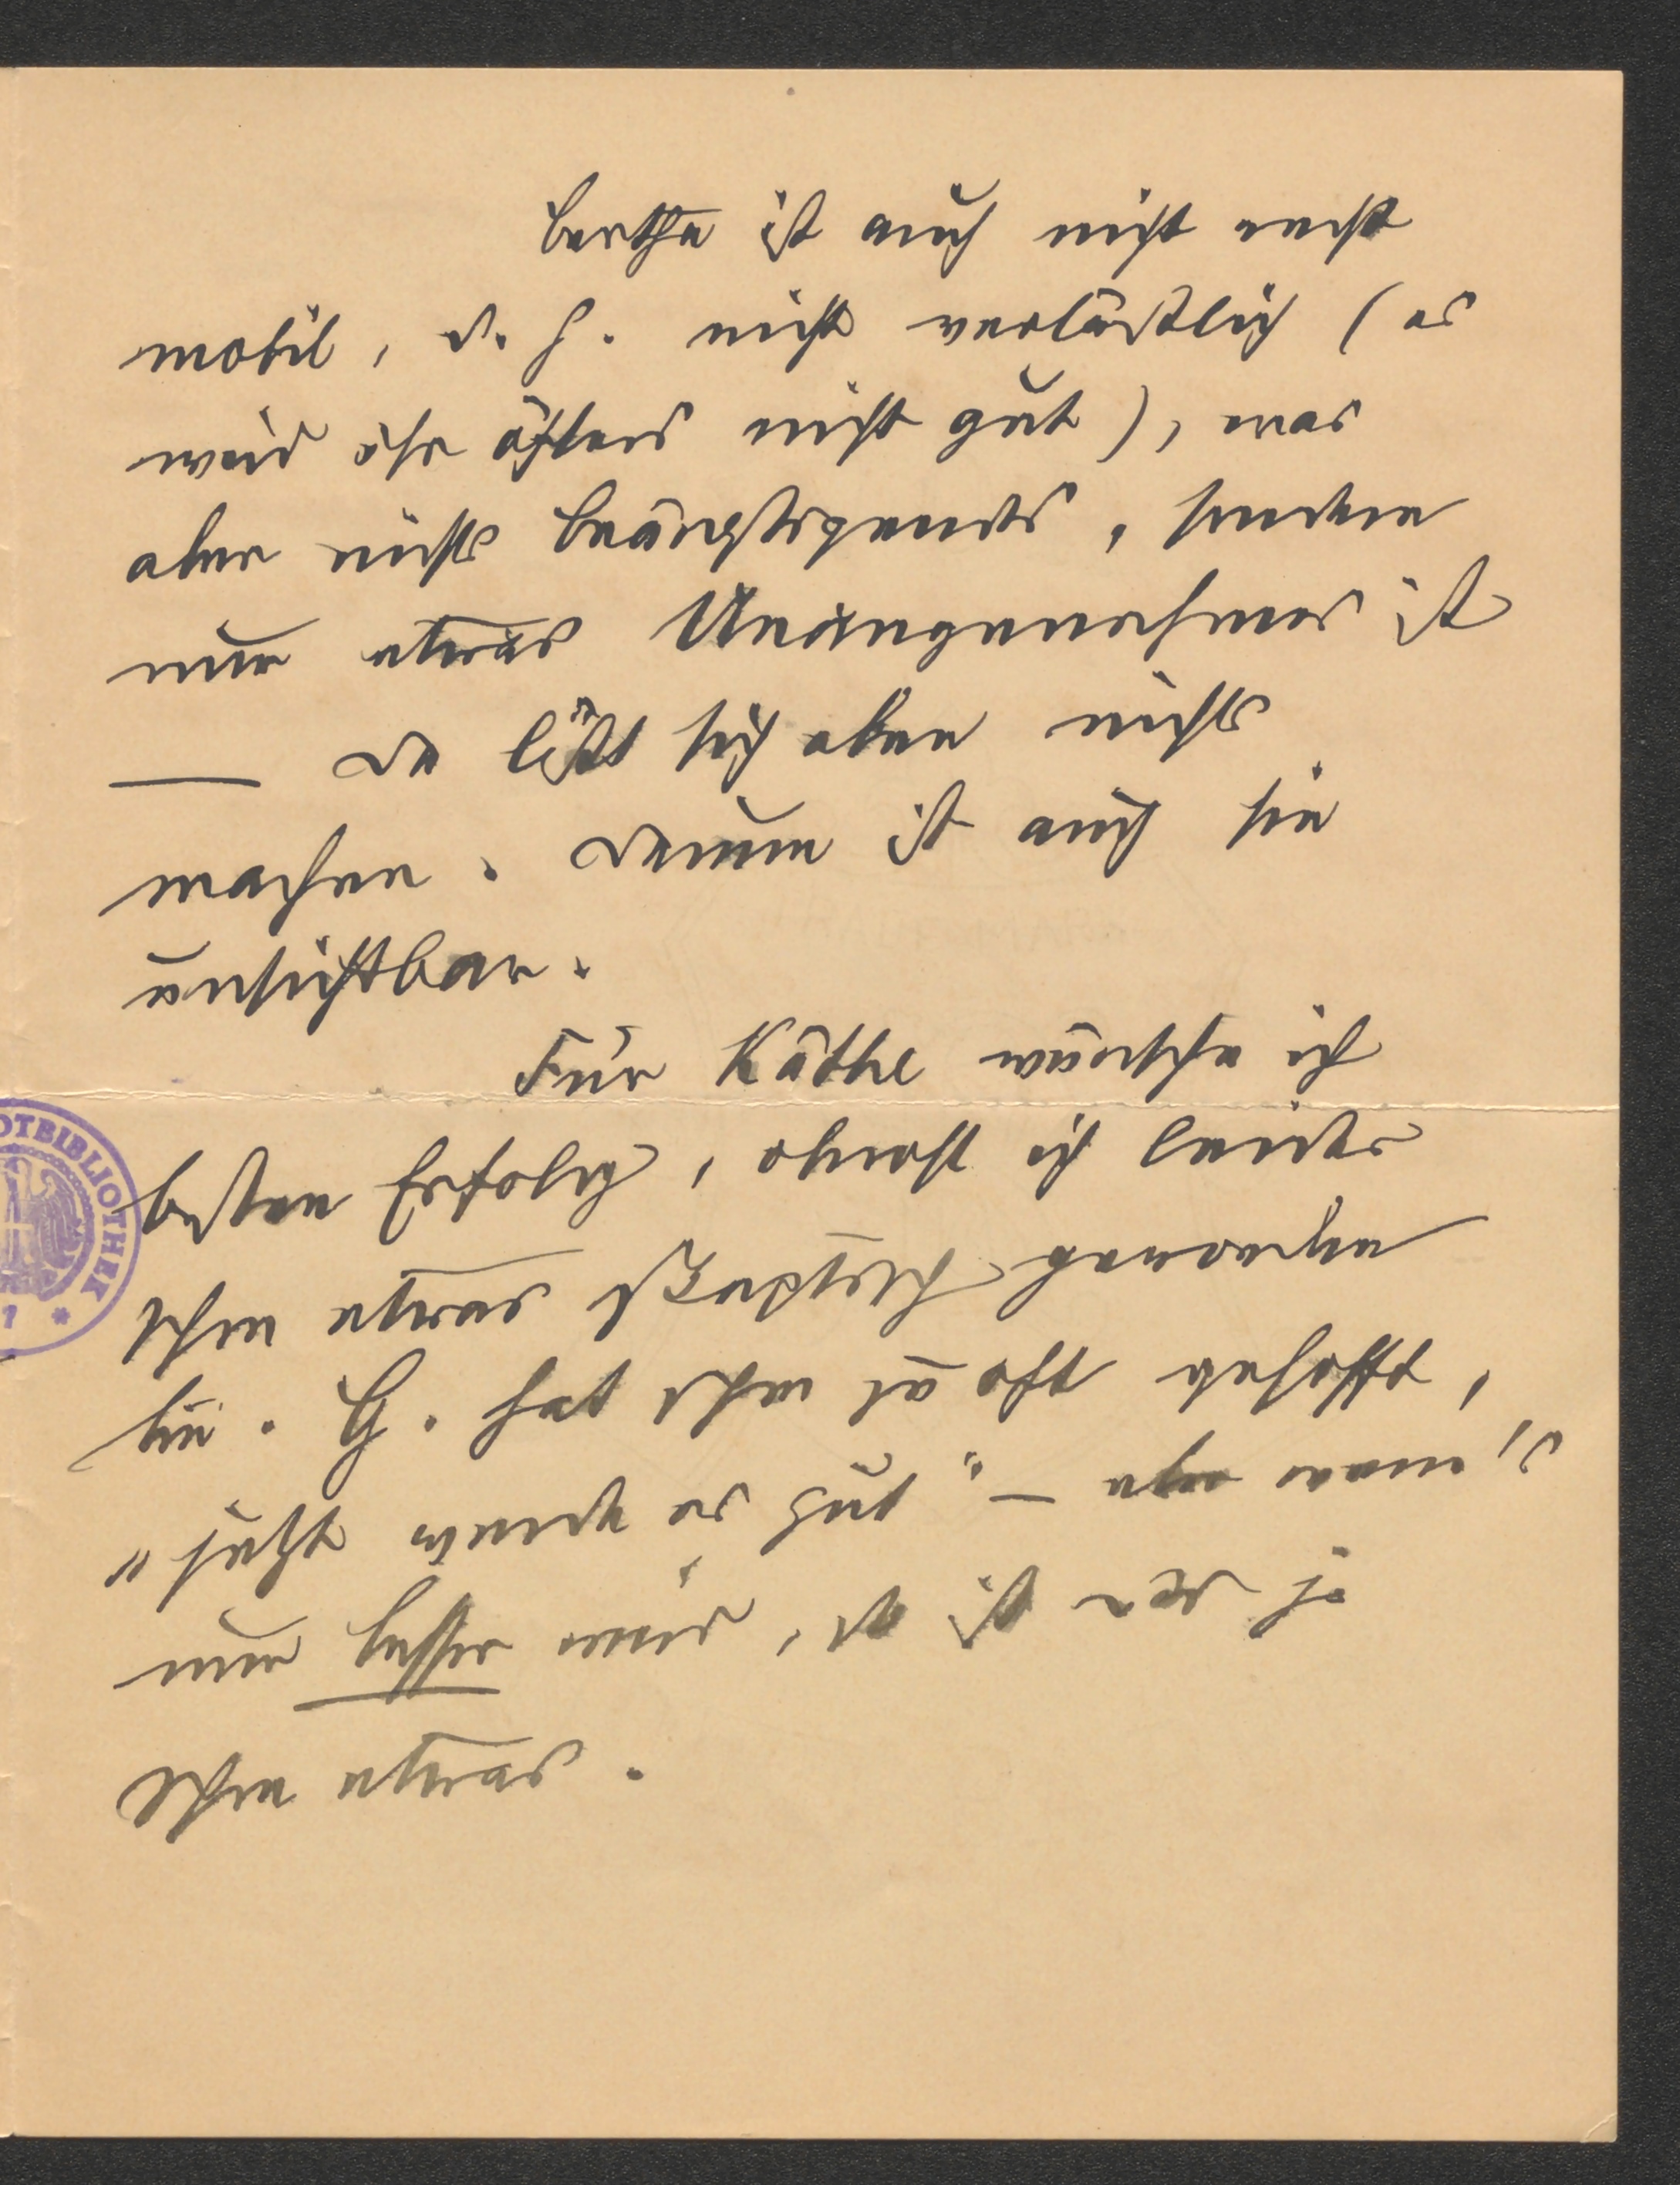 Berthe ist auch nicht recht
mobil, d. h. nicht verläßlich (es
wird ihr öfters nicht gut), was
aber nichts Beängstigendes, sondern
nur etwas Unangenehmes ist
— da läßt sich aber nichts
machen. Darum ist auch sie
unsichtbar.
Für Käthe wünsche ich
besten Erfolg, obwohl ich leider
schon etwas skeptisch geworden
bin. G. hat schon zu oft gehofft,
„jetzt werde es gut“ — aber wenn's
nur besser wird, so ist das ja
schon etwas.
OTBIBLIOTHEK
7 *